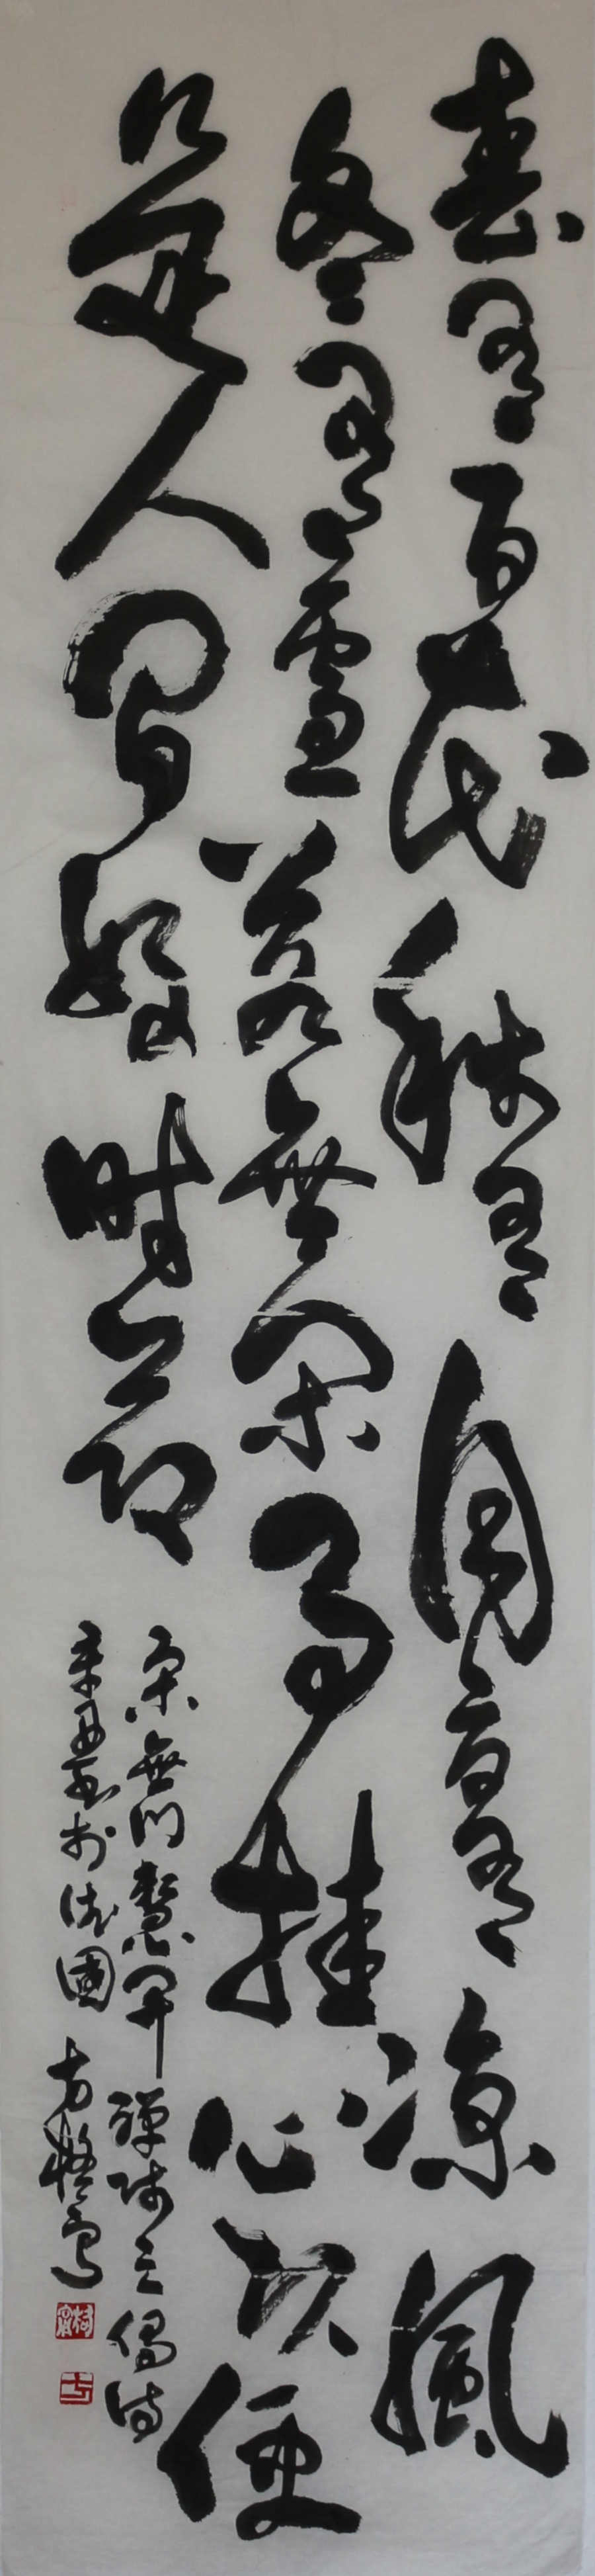 春有百花秋有月夏有涼風
冬有雪若無閑事挂心頭便
是人間好時節
宋無門慧開禪師之偈詩
辛丑於國方